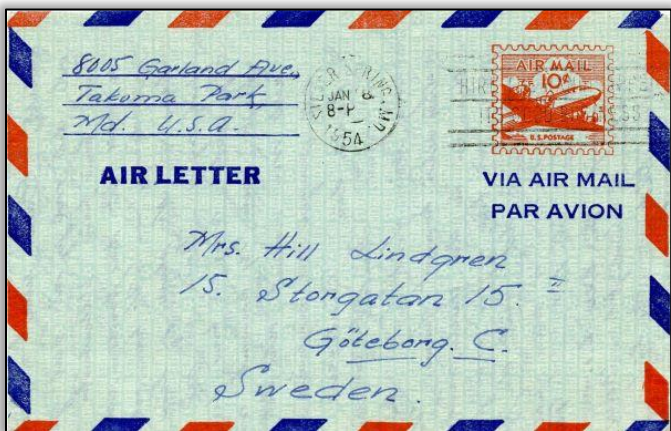 8005 Garland Ave.,
Takoma Park,
Md. U.S.A.
SILVER SPRING, MD.
JAN 8
8-P
1954
AIR MAIL
10¢
U.S. POSTAGE
AIR LETTER
VIA AIR MAIL
PAR AVION
Mrs. Hill Lindgren
15. Storgatan 15. II
Göteborg. C.
Sweden.